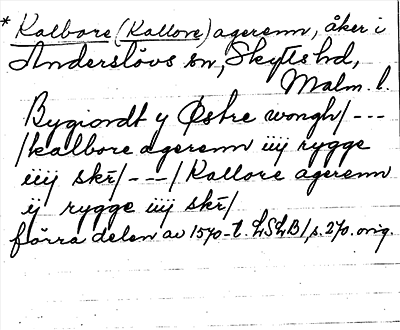 * Kalbore (Kallore) agerenn, åker i
Anderslövs sn, Skytts hd,
Malm. l.
Bygiordt y Østre wongh/ ---
/kalbore agerenn iiij rygge
iiij skr/ --- / Kallore agerenn
ij rygge iiij skr/
förra delen av 1570-t. LSLB/, s. 270. orig.